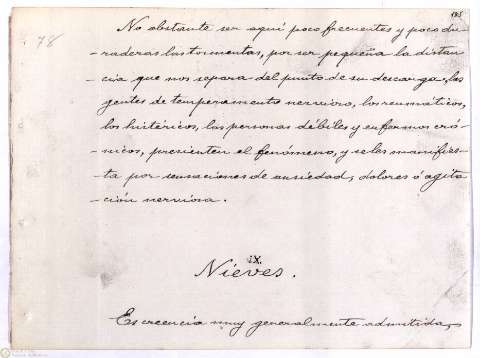 185
78
No obstante ser aquí poco frecuentes y poco du-
-raderas las tormentas, por ser pequeña la distan-
-cia que nos separa del punto de su descarga, las
gentes de temperamento nervioso, los reumáticos,
los histéricos, las personas débiles y enfermos cró-
-nicos, presienten el fenómeno, y se les manifies-
-ta por sensaciones de ansiedad, dolores ó agita-
-ción nerviosa.
IX.
Nieves.
Es creencia muy generalmente admitida,